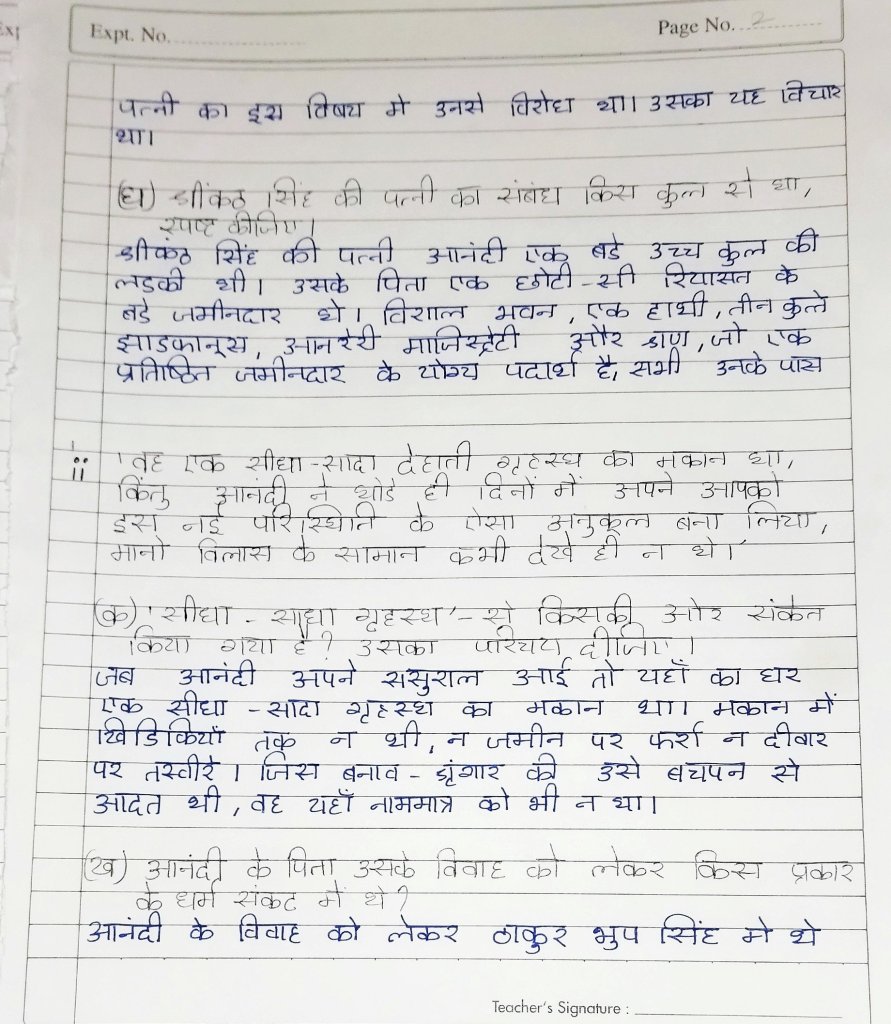 Expt. No.
Page No. 2
पत्नी का इस विषय मे उनसे विरोध था। उसका यह विचार
था।
(घ) श्रीकंठ सिंह की पत्नी का संबंध किस कुल से था,
स्पष्ट कीजिए।
श्रीकंठ सिंह की पत्नी आनंदी एक बडे उच्च कुल की
लडकी थी। उसके पिता एक छोटी-सी रियासत के
बडे जमीनदार थे। विशाल भवन, एक हाथी, तीन कुत्ते
झाडफानूस, आनरेरी माजिस्ट्रेटी और ऋण, जो एक
प्रतिष्ठित जमीनदार के योग्य पदार्थ है, सभी उनके पास
ii 'वह एक सीधा-सादा देहाती गृहस्थ का मकान था,
किंतु आनंदी ने थोडे ही दिनों में अपने आपको
इस नई परिस्थिति के ऐसा अनुकूल बना लिया,
मानो विलास के सामान कभी देखे ही न थे।'
(क) 'सीधा - साधा गृहस्थ' - से किसकी ओर संकेत
किया गया है? उसका परिचय दीजिए।
जब आनंदी अपने ससुराल आई तो यहाँ का घर
एक सीधा - सादा गृहस्थ का मकान था। मकान में
खिडिकियाँ तक न थी, न जमीन पर फर्श न दीवार
पर तस्वीरे। जिस बनाव - श्रृंगार की उसे बचपन से
आदत थी, वह यहाँ नाममात्र को भी न था।
(ख) आनंदी के पिता उसके विवाह को लेकर किस प्रकार
के धर्म संकट में थे?
आनंदी के विवाह को लेकर ठाकुर भुप सिंह मे थे
Teacher's Signature :